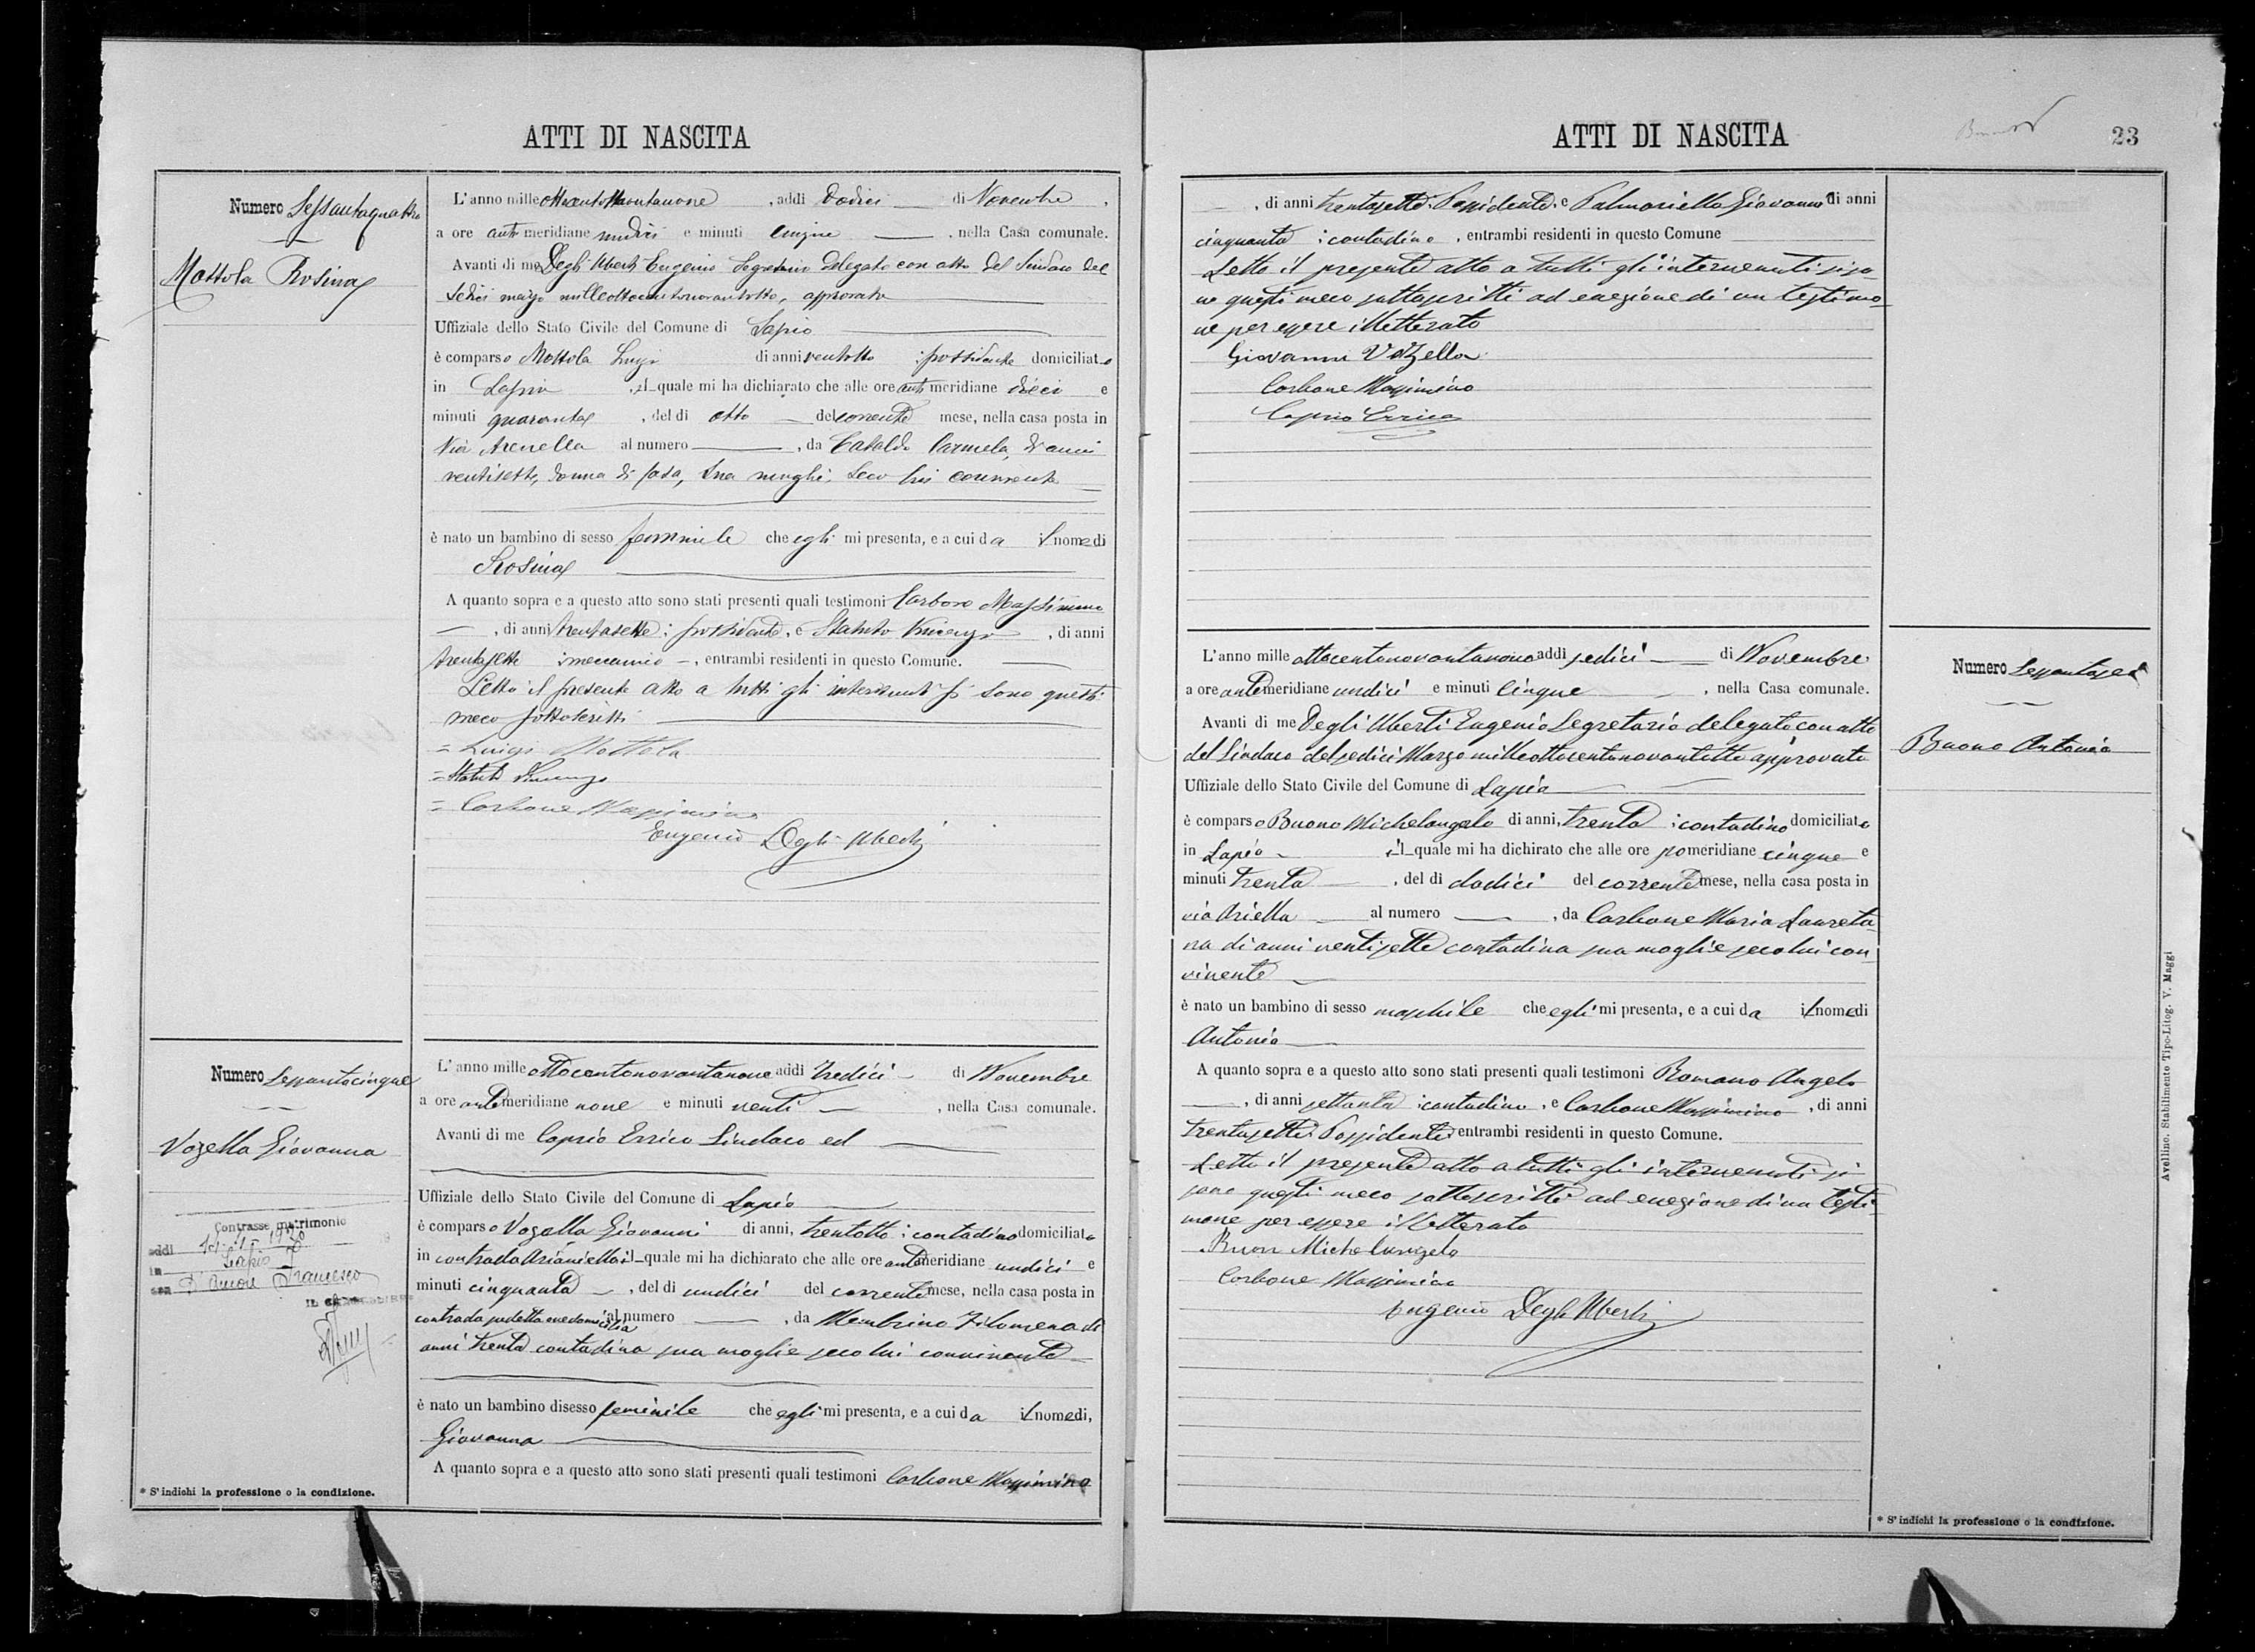 ATTI DI NASCITA
Numero Sessantaquattro
Mottola Rosina
L'anno mille ottocentonovantanove, addì dodici di Novembre,
a ore anti meridiane undici e minuti cinque, nella Casa comunale.
Avanti di me Degli Uberti Eugenio Segretario delegato con atto del Sindaco del
sedici marzo milleottocentonovantotto, approvato
Uffiziale dello Stato Civile del Comune di Lapio
è comparso Mottola Luigi di anni ventotto possidente domiciliato
in Lapio, il quale mi ha dichiarato che alle ore anti meridiane dieci e
minuti quaranta, del dì otto del corrente mese, nella casa posta in
Via Arenella al numero , da Cataldo Carmela, di anni
ventisette, donna di casa, sua moglie, seco lui convivente
è nato un bambino di sesso femminile che egli mi presenta, e a cui da il nome di
Rosina
A quanto sopra e a questo atto sono stati presenti quali testimoni Carbone Massimino
, di anni trentasette; possidente, e Statuto Vincenzo, di anni
trentasette meccanico, entrambi residenti in questo Comune.
Letto il presente atto a tutti gli intervenuti si sono questi
meco sottoscritti
= Luigi Mottola
= Statuto Vincenzo
= Carbone Massimino
Eugenio Degli Uberti
Numero Sessantacinque
Vozella Giovanna
Contrasse matrimonio
addì 1920
in Lapio
con D'Amore Francesco
L'anno mille ottocentonovantanove addì tredici di Novembre
a ore antimeridiane nove e minuti venti, nella Casa comunale.
Avanti di me Caprio Errico Sindaco ed
Uffiziale dello Stato Civile del Comune di Lapio
è comparso Vozella Giovanni di anni, trentotto; contadino domiciliato
in contrada Arianiello il quale mi ha dichiarato che alle ore antimeridiane undici e
minuti cinquanta, del dì undici del corrente mese, nella casa posta in
contrada sudetta ove domicilia al numero , da Membrino Filomena di
anni trenta contadina sua moglie seco lui convivente
è nato un bambino di sesso feminile che egli mi presenta, e a cui da il nome di,
Giovanna
A quanto sopra e a questo atto sono stati presenti quali testimoni Carbone Massimino
* S'indichi la professione o la condizione.
ATTI DI NASCITA
23
, di anni trentasette, Possidente, e Palmariello Giovanni di anni
cinquanta; contadino, entrambi residenti in questo Comune
Letto il presente atto a tutti gl'intervenuti si so-
no questi meco sottoscritti ad eccezione di un testimo-
ne per essere illetterato
Giovanni Vozella
Carbone Massimino
Caprio Errico
Numero Sessantasei
Buono Antonio
L'anno mille ottocentonovantanove addì sedici di Novembre
a ore antimeridiane undici e minuti cinque, nella Casa comunale.
Avanti di me Degli Uberti Eugenio Segretario delegato con atto
del Sindaco del sedici Marzo milleottocentonovantotto approvato
Uffiziale dello Stato Civile del Comune di Lapio
è comparso Buono Michelangelo di anni, trenta; contadino domiciliato
in Lapio il quale mi ha dichirato che alle ore pomeridiane cinque e
minuti trenta, del dì dodici del corrente mese, nella casa posta in
via Ariella al numero , da Carbone Maria Laureta-
na di anni ventisette contadina sua moglie seco lui con-
vivente
è nato un bambino di sesso maschile che egli mi presenta, e a cui da il nome di
Antonio
A quanto sopra e a questo atto sono stati presenti quali testimoni Romano Angelo
, di anni settanta; contadino, e Carbone Massimino, di anni
trentasette Possidente entrambi residenti in questo Comune.
Letto il presente atto a tutti gli intervenuti si
sono questi meco sottoscritti ad eccezione di un testi-
mone per essere illetterato
Buon Michelangelo
Carbone Massimino
Eugenio Degli Uberti
* S'indichi la professione o la condizione.
Avellino. Stabilimento Tipo-Litog. V. Maggi